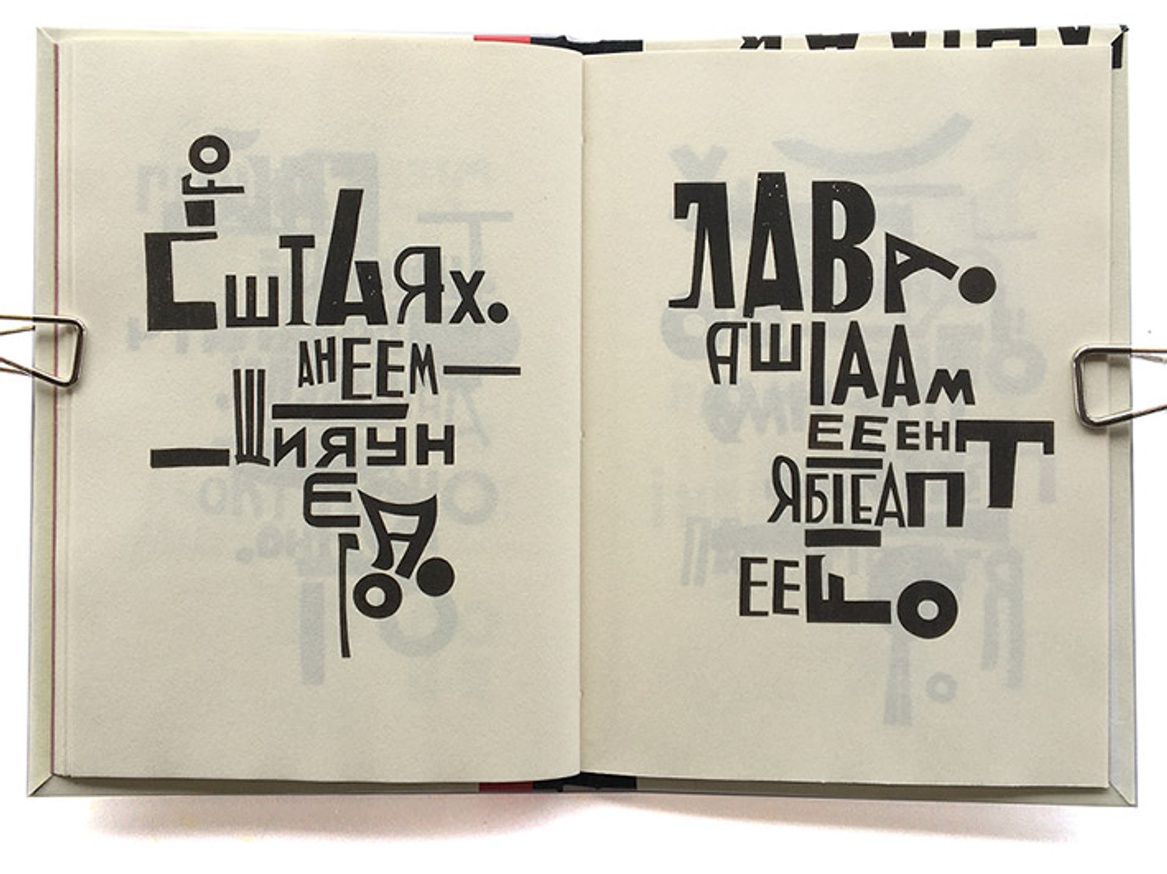 СШТАЯХ.
АНЕЕМ—
—ЩИЯУН
Е
А.
ЛАВА.
АШІААМ
ЕЕЕНТ
ЯБІЕАП
ЕЕГО